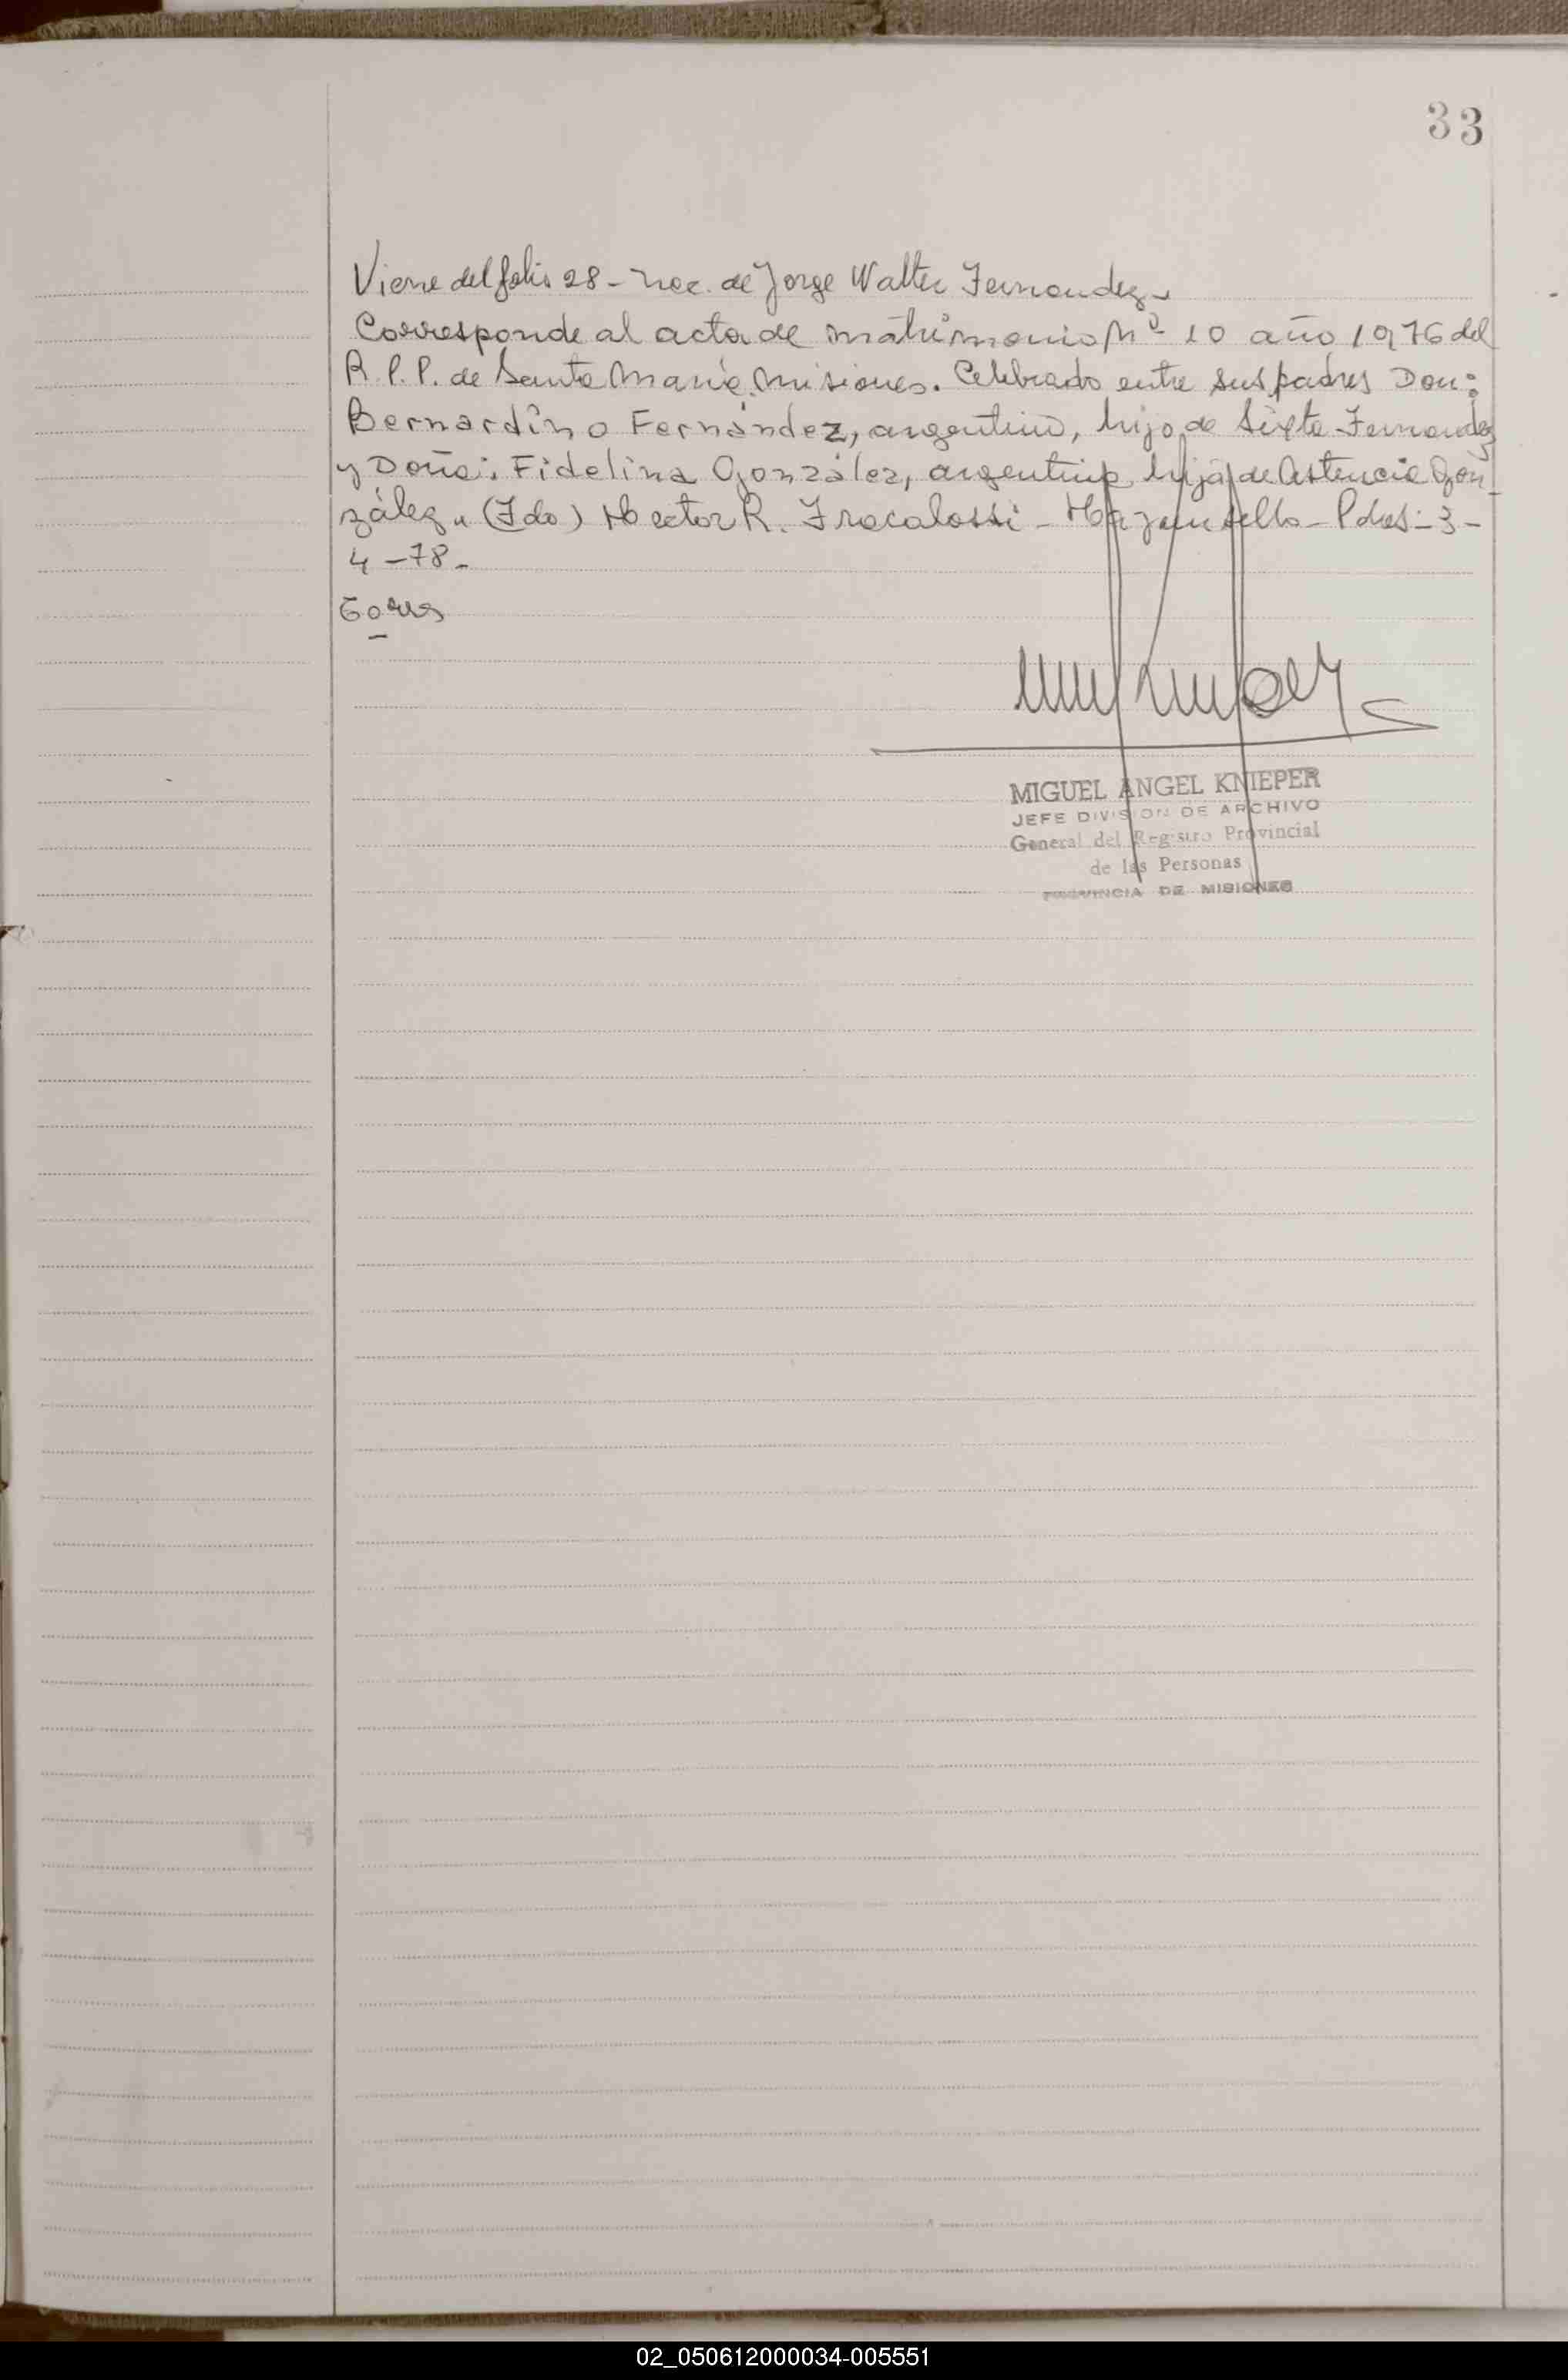 33
Viene del folio 28 - nac. de Jorge Walter Fernandez -
Corresponde al acta de matrimonio Nº 10 año 1976 del
R.P.P. de Santa María. Misiones. Celebrado entre sus padres Don:
Bernardino Fernández, argentino, hijo de Sixta Fernandez
y Doña: Fidelina González, argentina, hija de Astencia Gon-
zález. (Fdo) Hector R. Fracalossi - Hay un sello - Pdas - 3 -
4 - 78. -
MIGUEL ANGEL KNIEPER
JEFE DIVISION DE ARCHIVO
General del Registro Provincial
de las Personas
PROVINCIA DE MISIONES
02_050612000034-005551